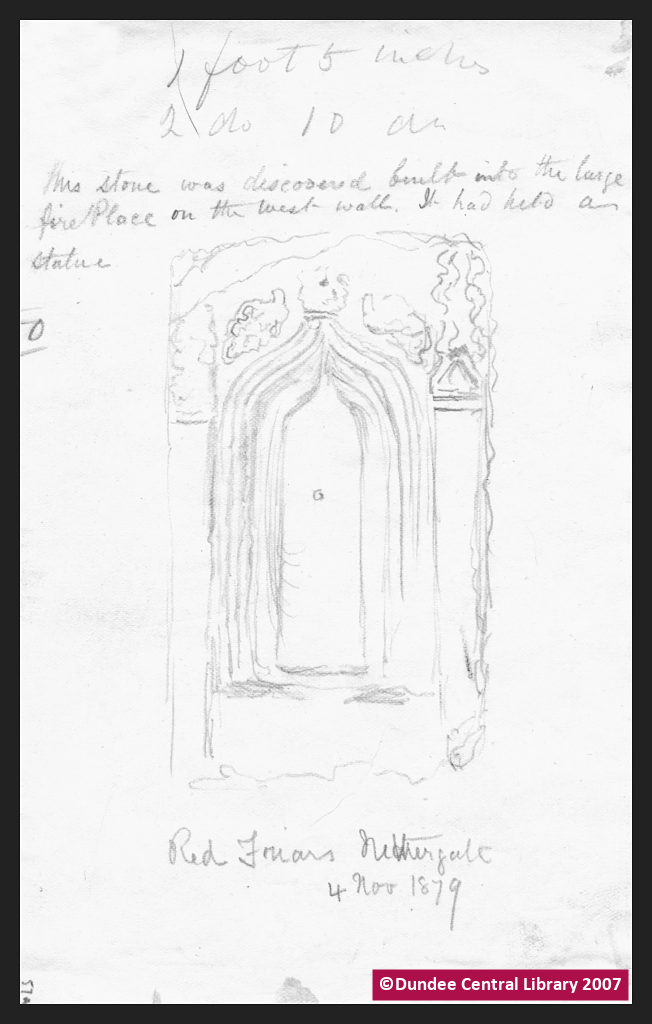 1 foot 5 inches
2 do 10 do
This stone was discovered built into the large
fire Place on the west wall. It had held a
statue
0
Red Friars Nethergate
4 Nov 1879
©Dundee Central Library 2007